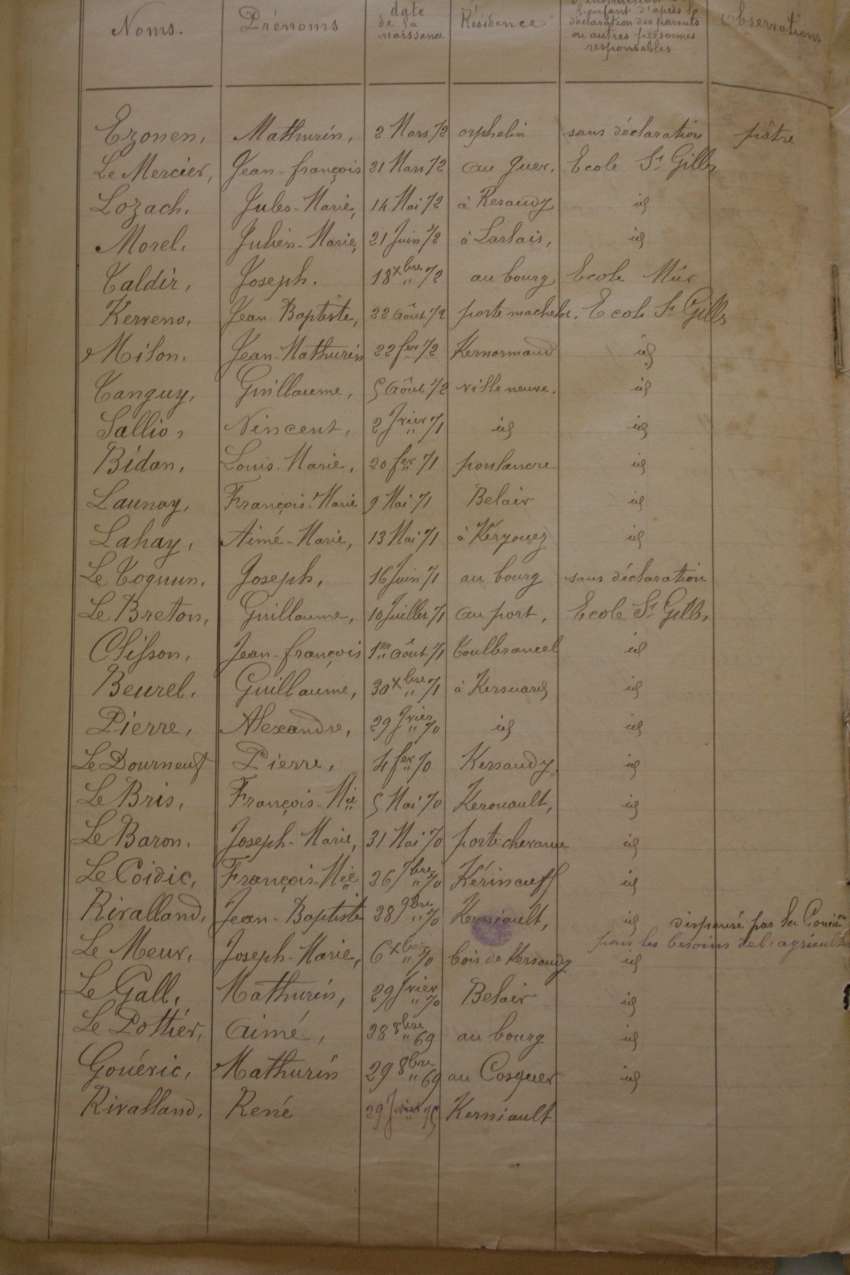 Noms. Prénoms date de la naissance Résidence l'enfant d'après la déclaration des parents ou autres personnes responsables Observations
Ezonen, Mathurin, 2 Mars 72 orphelin sans déclaration pâtre
Le Mercier, Jean-françois 31 Mars 72 au Quer. Ecole St Gilles
Lozach, Jules-Marie, 14 Mai 72 à Resaudy id
Morel, Julien-Marie, 21 Juin 72 à Larlais, id
Taldir, Joseph. 18 xbre 72 au bourg Ecole Mûr
Kerreno, Jean Baptiste, 22 Août 72 Ecole St Gilles
Milon, Jean-Mathurin 22 72 Kernormand id
Tanguy, Guillaume, 5 Août 72 ville neuve. id
Sallio, Vincent, 2 Jvier 71 id id
Bidan, Louis-Marie, 20 fer 71 poulancre id
Launay, François-Marie 9 Mai 71 Belair id
Lahay, Aimé-Marie, 13 Mai 71 à Keryouez id
Le Toquin, Joseph, 16 Juin 71 au bourg sans déclaration
Le Breton, Guillaume, 10 Juillet 71 au port, Ecole St Gilles
Clisson, Jean-françois 1er Août 71 Toulbrancel id
Beurel, Guillaume, 30 xbre 71 à Kersuard id
Pierre, Alexandre, 29 Jvier 70 id id
Le Dourneuf Pierre, 4 fer 70 Kersaudy, id
Le Bris, François-Mie 5 Mai 70 Kerouault, id
Le Baron, Joseph-Marie, 31 Mai 70 id
Le Coidic, François-Mie 26 7bre 70 Kérinauff id
Rivalland, Jean-Baptiste 28 9bre 70 Kerniault, id dispensé par la
pour les besoins de l'agriculture
Le Meur, Joseph-Marie, 6 xbre 70 bois de Kersaudy id
Le Gall, Mathurin, 29 Jvier 70 Belair id
Le Pottier, Aimé, 28 8bre 69 au bourg id
Gouéric, Mathurin 29 8bre 69 au Cosquer id
Rivalland, René 29 Jvier 75 Kerniault